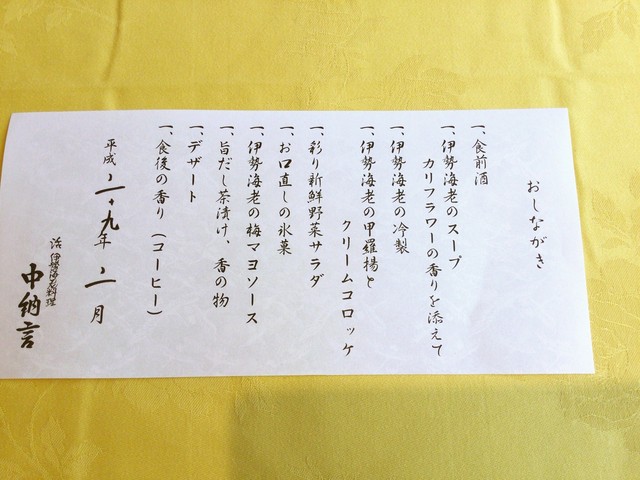 おしながき
一、食前酒
一、伊勢海老のスープ
カリフラワーの香りを添えて
一、伊勢海老の冷製
一、伊勢海老の甲羅揚と
クリームコロッケ
一、彩り新鮮野菜サラダ
一、お口直しの氷菓
一、伊勢海老の梅マヨソース
一、旨だし茶漬け、香の物
一、デザート
一、食後の香り（コーヒー）
平成二十九年二月
活伊勢海老料理
中納言